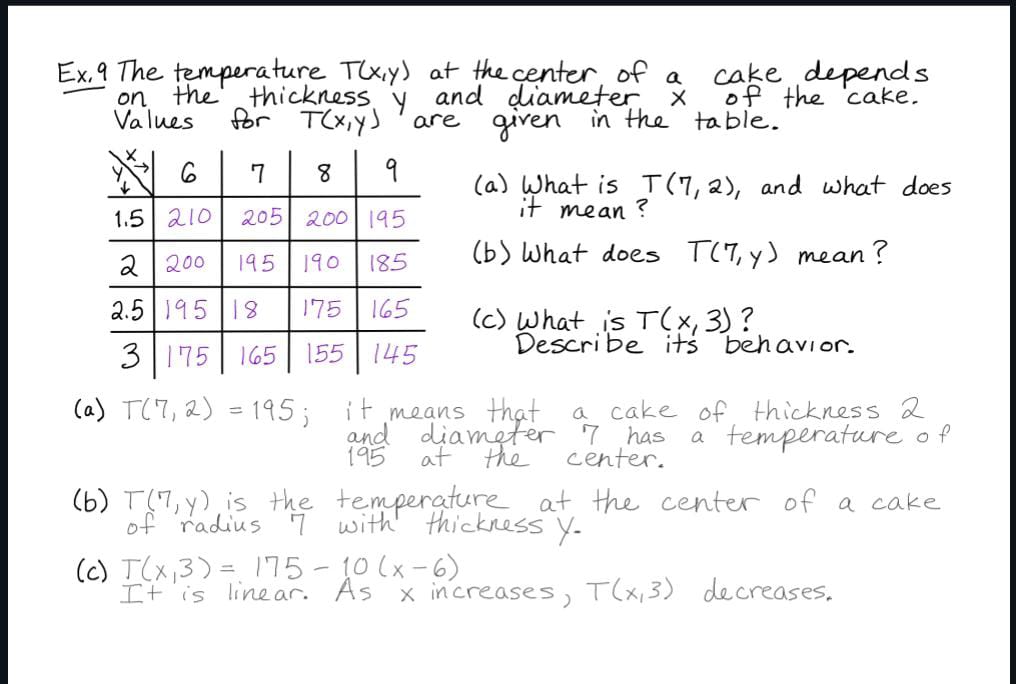 Ex.9 The temperature T(x,y) at the center of a cake depends
on the thickness y and diameter x of the cake.
Values for T(x,y) are given in the table.
x→ y↓ 6 7 8 9
1.5 210 205 200 195
2 200 195 190 185
2.5 195 18 175 165
3 175 165 155 145
(a) What is T(7,2), and what does
it mean?
(b) What does T(7,y) mean?
(c) What is T(x,3)?
Describe its behavior.
(a) T(7,2) = 195; it means that a cake of thickness 2
and diameter 7 has a temperature of
195 at the center.
(b) T(7,y) is the temperature at the center of a cake
of radius 7 with thickness y.
(c) T(x,3) = 175 - 10(x-6)
It is linear. As x increases, T(x,3) decreases.